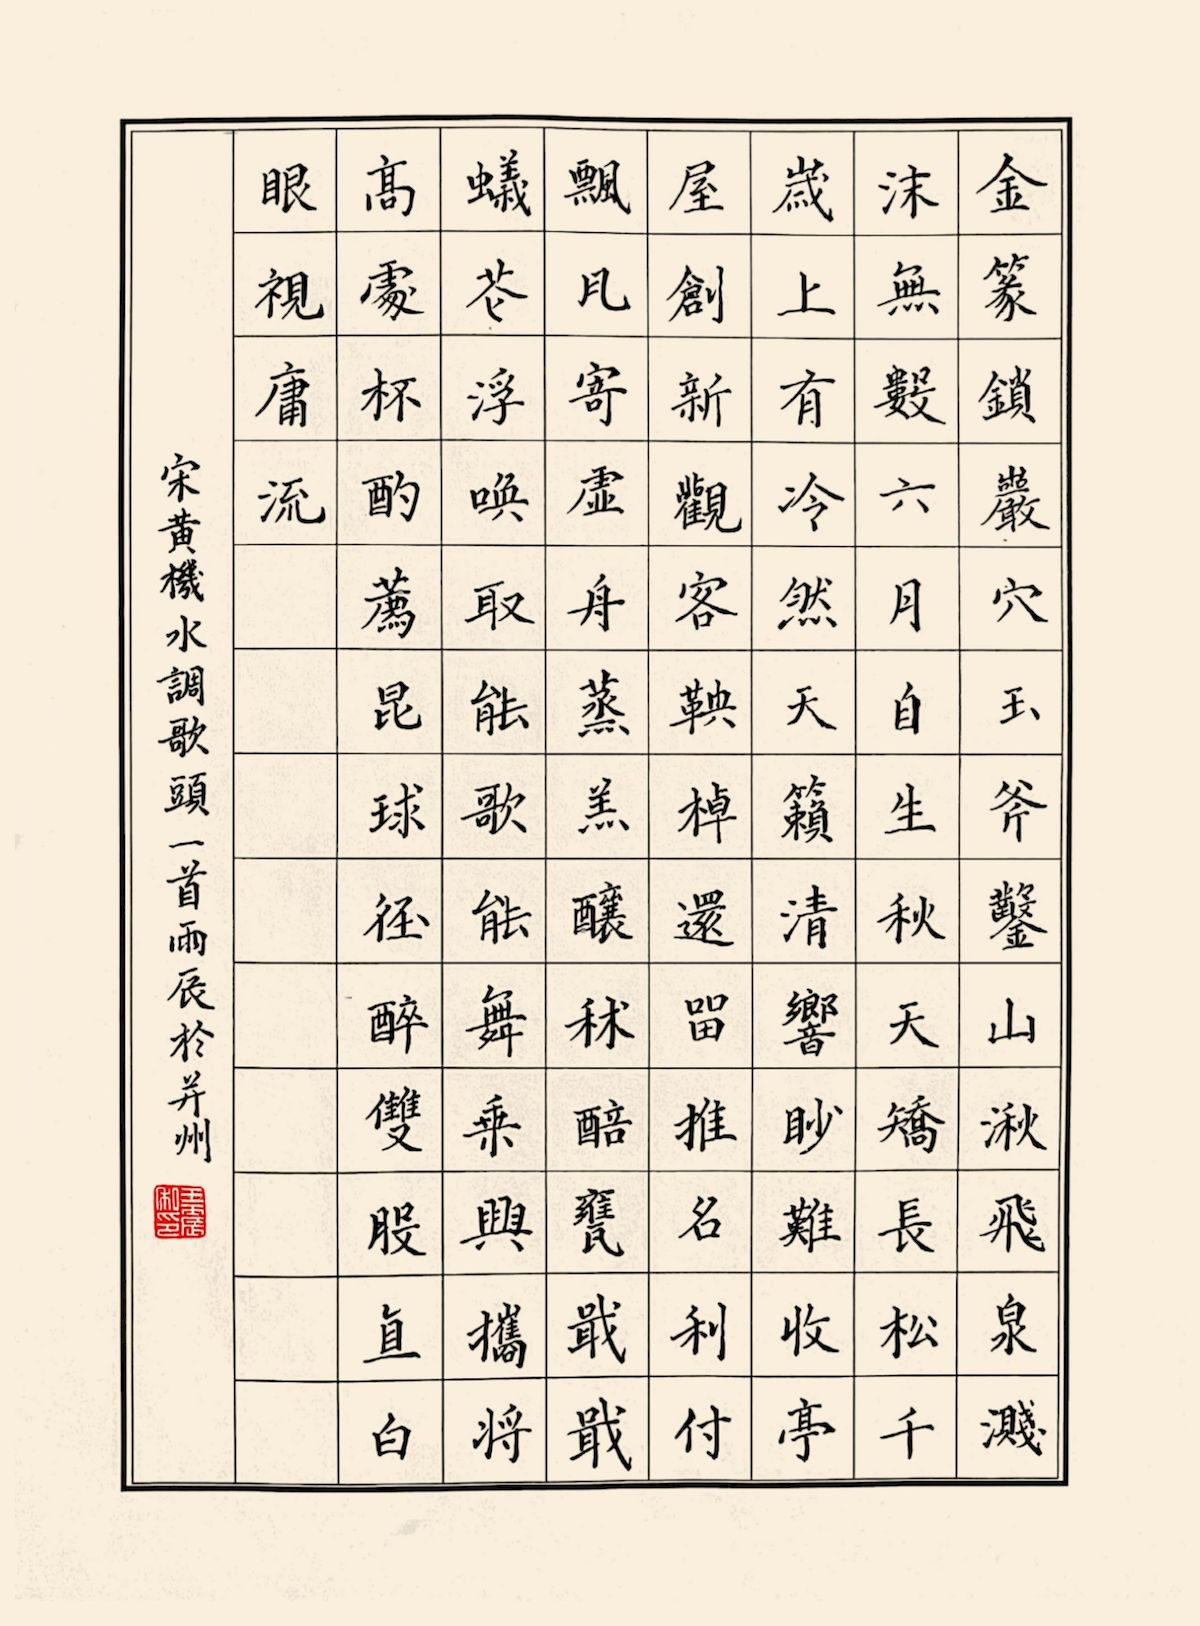 金篆鎖巖穴玉斧鑿山湫飛泉濺
沫無數六月自生秋天矯長松千
歲上有冷然天籟清響眇難收亭
屋創新觀客鞅棹還留推名利付
飄瓦寄虛舟蒸羔釀秫醅甕戢戢
蟻花浮喚取能歌能舞乘興攜將
高處杯酌薦昆球徑醉雙股直白
眼視庸流
宋黄機水調歌頭一首雨辰於并州